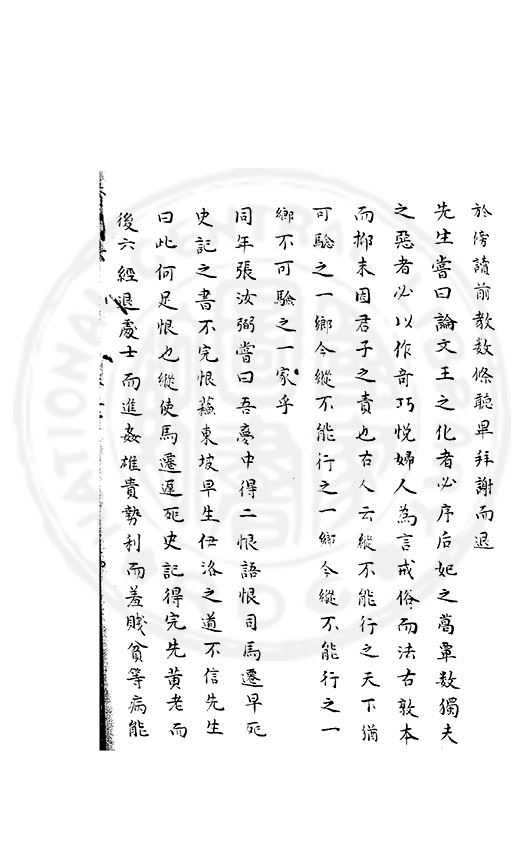 於傍讀前教数條聽畢拜謝而退
先生嘗曰論文王之化者必序后妃之葛覃数獨夫
之惡者必以作奇巧悅婦人為言戒俗而法古敦本
而抑末固君子之責也古人云縱不能行之天下猶
可驗之一鄉今縱不能行之一鄉今縱不能行之一
鄉不可驗之一家乎
同年張汝弼嘗曰吾夢中得二恨語恨司馬遷早死
史記之書不完恨蘓東坡早生伊洛之道不信先生
曰此何足恨也縱使馬遷遲死史記得完先黃老而
後六經退處士而進姦雄貴勢利而羞賤貧等病能